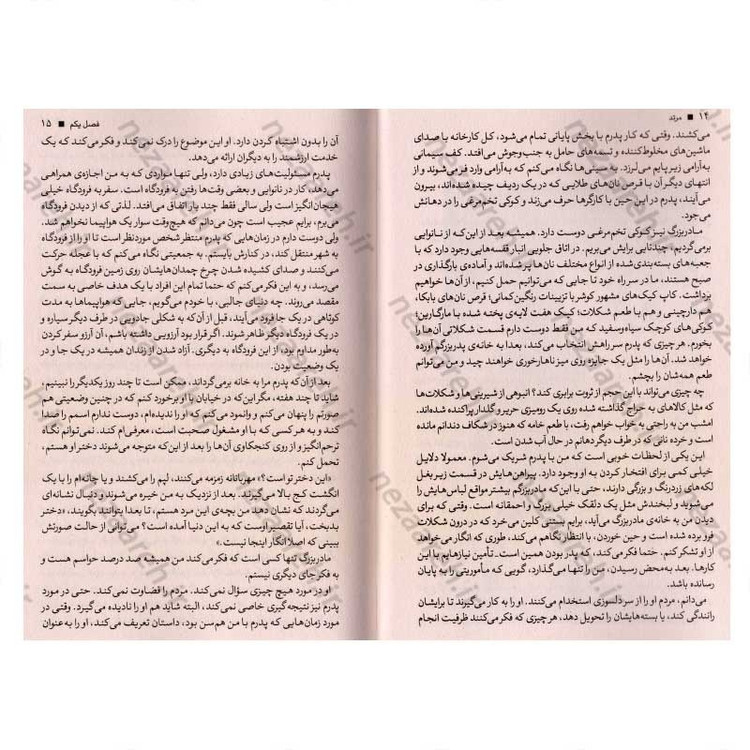 ۱۴ ■ مرثد
می‌کشند. وقتی که کار پدرم با بخش پایانی تمام می‌شود، کل کارخانه با صدای
ماشین‌های مخلوط‌کننده و تسمه‌های حامل به جنب‌وجوش می‌افتد. کف سیمانی
به‌آرامی زیر پایم می‌لرزد. به سینی‌ها نگاه می‌کنم که به‌آرامی وارد فر می‌شوند و از
انتهای دیگر آن با قرص نان‌های طلایی که در یک ردیف چیده شده‌اند، بیرون
می‌آیند، پدرم در این حین با کارگرها حرف می‌زند و کوکی تخم‌مرغی را در دهانش
می‌جود.
مادربزرگ نیز کوکی تخم‌مرغی دوست دارد. همیشه بعد از این که از نانوایی
برمی‌گردیم، چندتایی برایش می‌بریم. در اتاق جلویی انبار قفسه‌هایی وجود دارد که با
جعبه‌های بسته‌بندی‌شده از انواع مختلف نان‌ها پر شده‌اند و آماده‌ی بارگذاری در
صبح هستند، ما در سر راه خود تا جایی که می‌توانیم حمل کنیم، از آن‌ها خواهیم
برداشت. کاپ کیک‌های مشهور کوشر با تزیینات رنگین‌کمانی؛ قرص نان‌های بابکا،
هم دارچینی و هم با طعم شکلات؛ کیک هفت لایه‌ی پخته شده با مارگارین؛
کوکی‌های کوچک سیاه‌وسفید که من فقط دوست دارم قسمت شکلاتی آن‌ها را
بخورم. هر چیزی که پدرم سر راهش انتخاب می‌کند، بعدا به خانه‌ی پدربزرگم آورده
خواهد شد. آن‌ها را مثل یک جایزه روی میز ناهارخوری خواهند چید و من می‌توانم
طعم همه‌شان را بچشم.
چه چیزی می‌تواند با این حجم از ثروت برابری کند؟ انبوهی از شیرینی‌ها و شکلات‌ها
که مثل کالاهای به حراج گذاشته شده روی یک رومیزی حریر و گلدار پراکنده شده‌اند.
امشب من به راحتی به خواب خواهم رفت، با طعم خامه که هنوز در شکاف دندانم مانده
است و خرده نانی که در طرف دیگر دهانم در حال آب شدن است.
این یکی از لحظات خوبی است که من با پدرم شریک می‌شوم. معمولا دلایل
خیلی کمی برای افتخار کردن به او وجود دارد. پیراهن‌هایش در قسمت زیربغل
لکه‌های زردرنگ و بزرگی دارند، حتی با این که مادربزرگم بیشتر مواقع لباس‌هایش را
می‌شوید و لبخندش مثل یک دلقک خیلی بزرگ و احمقانه است. وقتی که برای
دیدن من به خانه‌ی مادربزرگ می‌آید، برایم بستنی کلین می‌خرد که در درون شکلات
فرو برده شده است و حین خوردن، با انتظار نگاهم می‌کند، طوری که انگار می‌خواهد
از او تشکر کنم، حتما فکر می‌کند، که پدر بودن همین است. تأمین نیازهایم با این
کارها. بعد به‌محض رسیدن، من را تنها می‌گذارد، گویی که مأموریتی را به پایان
رسانده باشد.
می‌دانم، مردم او را از سر دلسوزی استخدام می‌کنند. او را به کار می‌گیرند تا برایشان
رانندگی کند، یا بسته‌هایشان را تحویل دهد، هر چیزی که فکر می‌کنند ظرفیت انجام
فصل یکم ■ ۱۵
آن را بدون اشتباه کردن دارد. او این موضوع را درک نمی‌کند و فکر می‌کند که یک
خدمت ارزشمند را به دیگران ارائه می‌دهد.
پدرم مسئولیت‌های زیادی دارد، ولی تنها مواردی که به من اجازه‌ی همراهی
می‌دهد، کار در نانوایی و بعضی وقت‌ها رفتن به فرودگاه است. سفر به فرودگاه خیلی
هیجان‌انگیز است ولی سالی فقط چند بار اتفاق می‌افتد. لذتی که از دیدن فرودگاه
می‌برم، برایم عجیب است چون می‌دانم که هیچ وقت سوار یک هواپیما نخواهم شد.
ولی دوست دارم در زمان‌هایی که پدرم منتظر شخص موردنظر است تا او را از فرودگاه
به شهر منتقل کند، در کنارش بایستم. به جمعیتی نگاه می‌کنم که با عجله حرکت
می‌کنند و صدای کشیده شدن چرخ چمدان‌هایشان روی زمین فرودگاه به گوش
می‌رسد، و به این فکر می‌کنم که حتما تمام این افراد با یک هدف خاصی به سمت
مقصد می‌روند. چه دنیای جالبی، با خودم می‌گویم، جایی که هواپیماها به مدت
کوتاهی در یک جا فرود می‌آیند، قبل از آن که به شکلی جادویی در طرف دیگر سیاره و
در یک فرودگاه دیگر ظاهر شوند. اگر قرار بود آرزویی داشته باشم، آن آرزو سفر کردن
به‌طور مداوم بود، از این فرودگاه به دیگری. آزاد شدن از زندان همیشه در یک جا و در
یک وضعیت بودن.
بعد از آن که پدرم مرا به خانه برمی‌گرداند، ممکن است تا چند روز یکدیگر را نبینیم.
شاید تا چند هفته، مگر این که در خیابان با او برخورد کنم که در چنین وضعیتی هم
صورتم را پنهان می‌کنم و وانمود می‌کنم که او را ندیده‌ام، دوست ندارم اسمم را صدا
کند و به هر کسی که با او مشغول صحبت است، معرفی‌ام کند. نمی‌توانم نگاه
ترحم‌انگیز و از روی کنجکاوی آن‌ها را بعد از این که متوجه می‌شوند دختر او هستم،
تحمل کنم.
«این دختر تو است؟» مهربانانه زمزمه می‌کنند، لپم را می‌کشند و یا چانه‌ام را با یک
انگشت کج بالا می‌گیرند. بعد از نزدیک به من خیره می‌شوند و دنبال نشانه‌ای
می‌گردند که نشان دهد من بچه‌ی این مرد هستم، تا بعدا بتوانند بگویند، «دختر
بدبخت، آیا تقصیر اوست که به این دنیا آمده است؟ می‌توانی از حالت صورتش
ببینی که اصلا انگار اینجا نیست.»
مادربزرگ تنها کسی است که فکر می‌کند من همیشه صد درصد حواسم هست و
به فکر جای دیگری نیستم.
او در مورد هیچ چیزی سؤال نمی‌کند. مردم را قضاوت نمی‌کند. حتی در مورد
پدرم نیز نتیجه‌گیری خاصی نمی‌کند، البته شاید هم او را نادیده می‌گیرد. وقتی در
مورد زمان‌هایی که پدرم با من هم‌سن بود، داستان تعریف می‌کند، او را به‌عنوان
nezaareh.ir